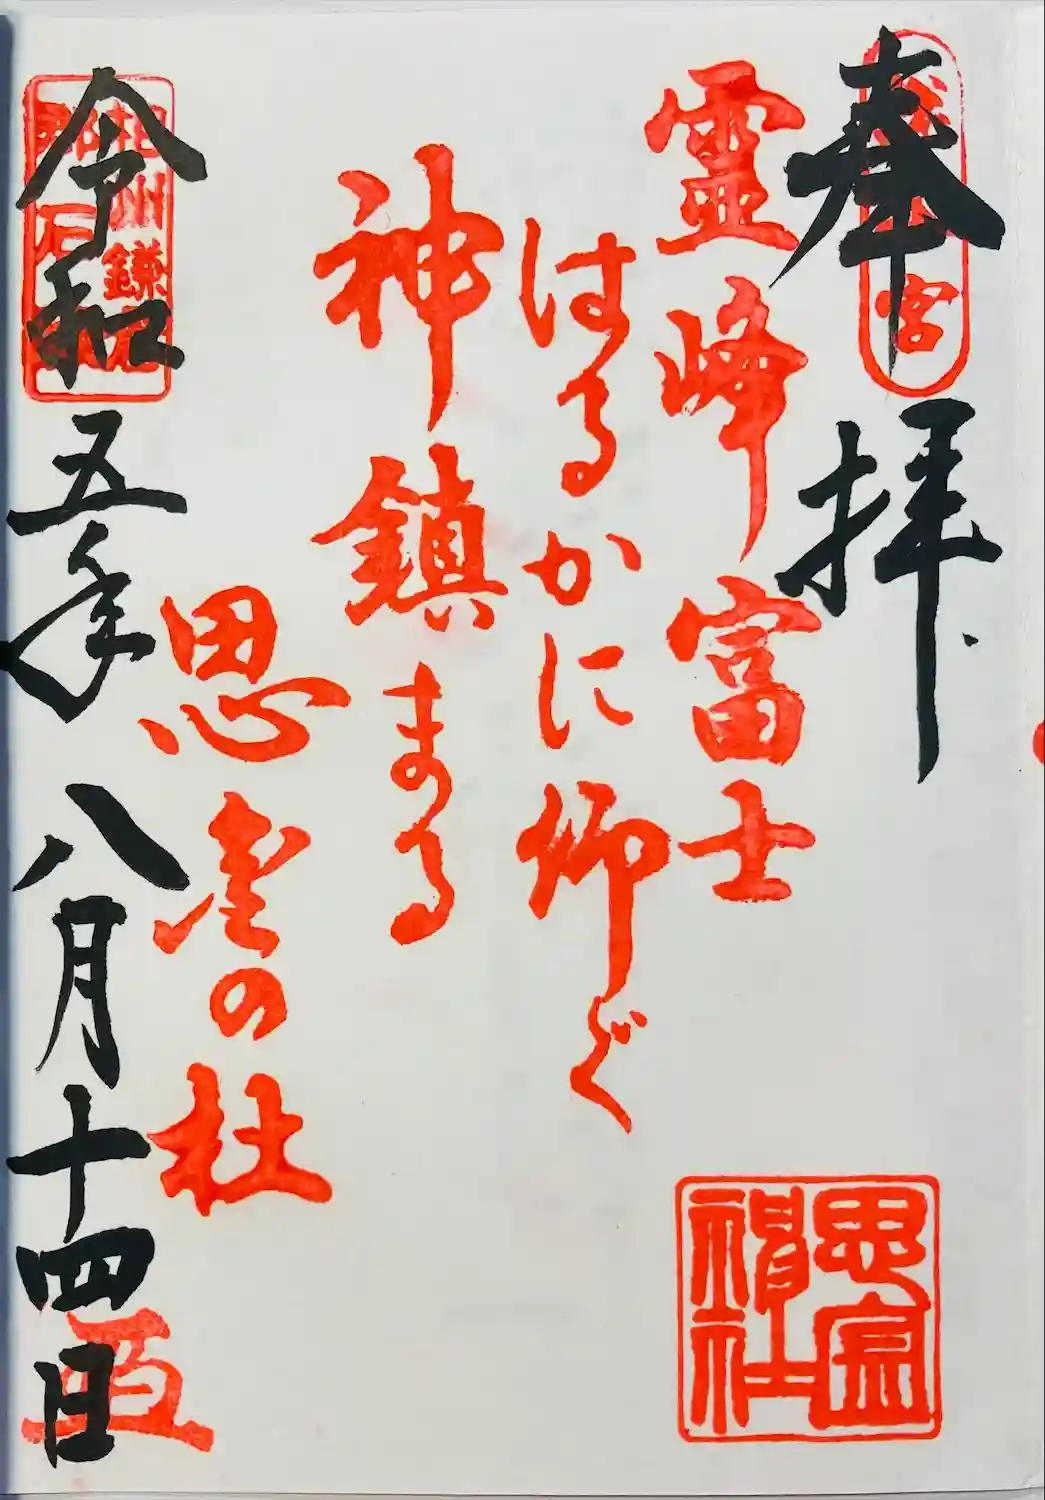 奉拝
宮
霊峰富士
はるかに仰ぐ
神鎮まる
思金の杜
思金神社
相州鎌
令和五年八月十四日